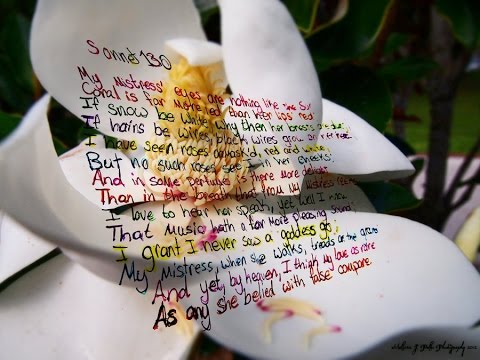 Sonnet 130
My Mistress' eyes are nothing like the Sun
Coral is far more red than her lips' red
If snow be white, why then her breasts are dun
If hairs be wires, black wires grow on her head.
I have seen roses damask'd, red and white
But no such roses see I in her cheeks;
And in some perfume is there more delight
Than in the breath that from my mistress reeks
I love to hear her speak, yet well I know
That Music hath a far more pleasing sound,
I grant I never saw a goddess go;
My Mistress, when she walks, treads on the ground
And yet, by heaven, I think my love as rare
As any she belied with false compare.
Photography